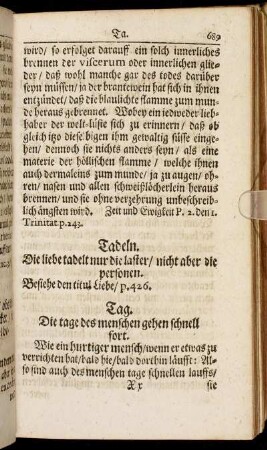 Ta. 689
wird/ so erfolget darauff ein solch innerliches
brennen der viscerum oder innerlichen glie-
der/ daß wohl manche gar des todes darüber
seyn müssen/ ja der brantewein hat sich in ihnen
entzündet/ daß die blaulichte flamme zum mun-
de heraus gebrennet. Wobey ein iedweder lieb-
haber der welt-lüste sich zu erinnern/ daß ob
gleich itzo diese bigen ihm gewaltig süsse einge-
hen/ dennoch sie nichts anders seyn/ als eine
materie der höllischen flamme/ welche ihnen
auch dermaleins zum munde/ ja zu augen/ oh-
ren/ nasen und allen schweißlöcherlein heraus
brennen/ und sie ohne verzehrung unbeschreib-
lich ängsten wird. Zeit und Ewigkeit P. 2. den 1.
Trinitat. p. 243.
Tadeln.
Die liebe tadelt nur die laster/ nicht aber die
personen.
Besiehe den titul Liebe/ p. 426.
Tag.
Die tage des menschen gehen schnell
fort.
Wie ein hurtiger mensch/ wenn er etwas zu
verrichten hat/ bald hie/ bald dorthin läufft: Al-
so sind auch des menschen tage schnellen lauffs/
X x sie